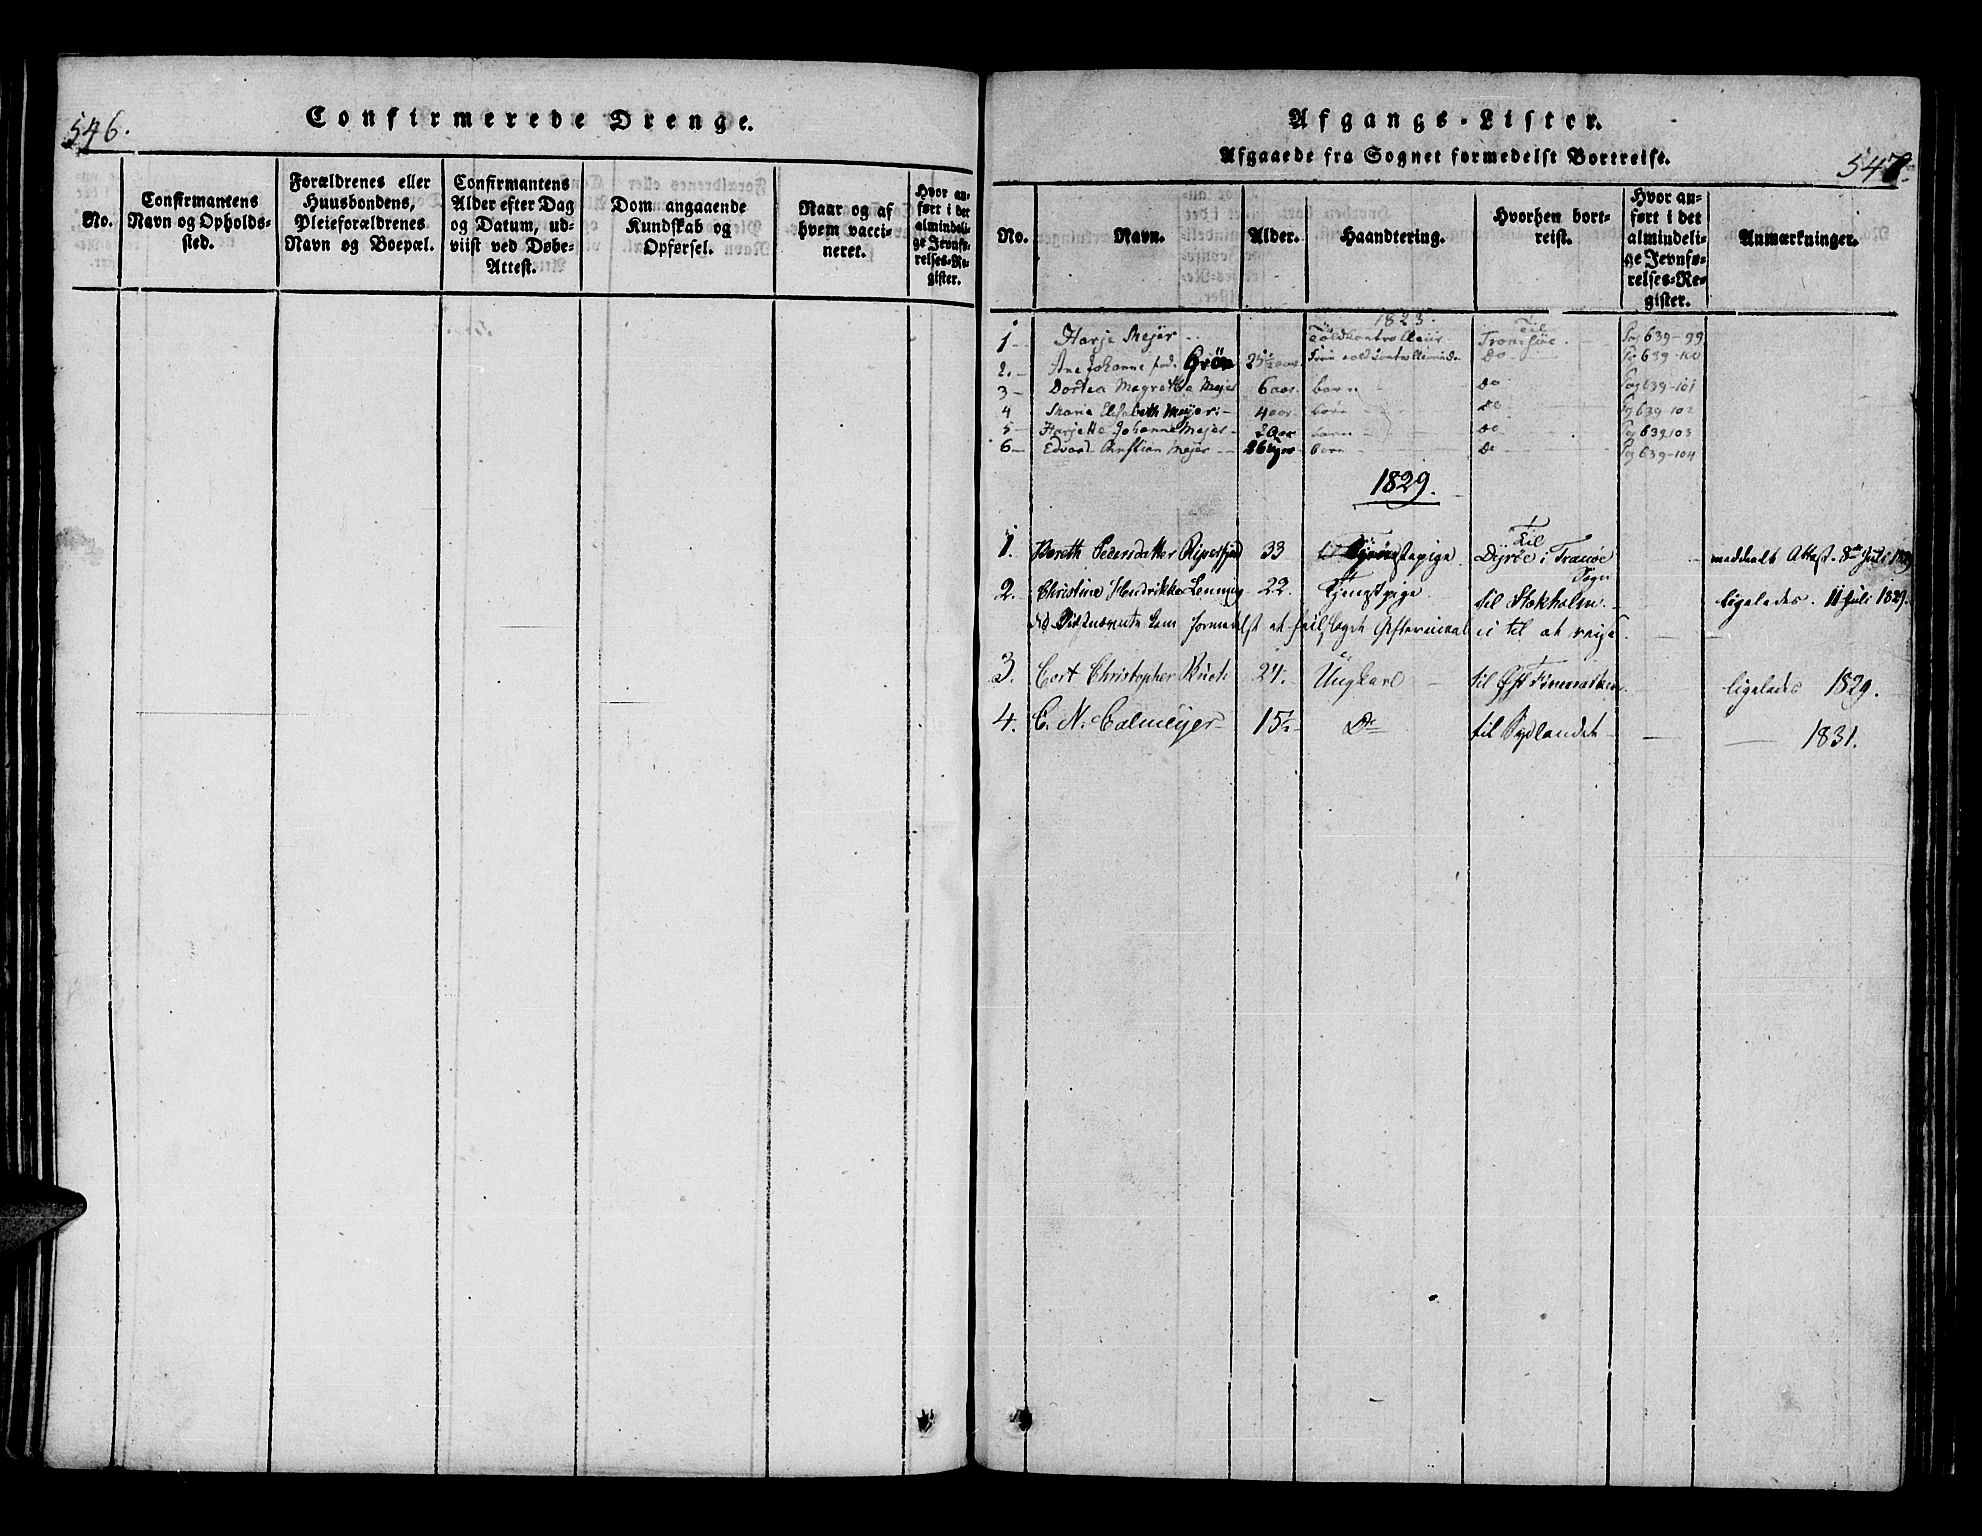 546.
Confirmerede Drenge.
No.
Confirmantens Navn og Opholds-sted.
Forældrenes eller Huusbondens, Pleieforældrenes Navn og Boepæl.
Confirmantens Alder efter Dag og Datum, ud-viist ved Døbe-Attest.
Dom angaaende Kundskab og Opførsel.
Naar og af hvem vacci-neret.
Hvor an-ført i det almindeli-ge Jevnfø-relses-Re-gister.
Afgangs-Lister.
Afgaaede fra Sognet formedelst Bortreise.
547.
No.
Navn.
Alder.
Haandtering.
Hvorhen bort-reist.
Hvor an-ført i det almindeli-ge Jevnfø-relses-Re-gister.
Anmærkninger.
1823.
1 Harje Mejer Toldkontrolleur Til Tromsøe Pag 639-99
2. Ane Johanne fød. Grön 25½ aar Do Pag 639-100
3 Dortea Magrethe Mejer 6 aar. barn do Pag 639-101
4 Maria Elisabeth Meyer 4 aar barn do Pag 639-102
5 Harjette Johanne Mejer 2 aar barn do Pag 639-103
6 Edvard Christian Mejer 26 Uger barn do Pag 639-104
1829.
1. Bereth Pedersdatter Ripefjord 33 Tjenestepige Til Dyröe i Tranöe Sogn meddeelt Attest 8de Juli 1829
2. Christine Hendrikke Lenning 22. Tjenestpige til Stokholm. ligeledes. 11 Juli 1829.
NB Sidstnævnte kom formedelst et feilslaget ei til at reise.
3. Cort Christopher Buck 24. Ungkarl til Øst Finmarken ligelades 1829.
4. C. N. Calmeyer 15 Do til Sydlandet 1831.